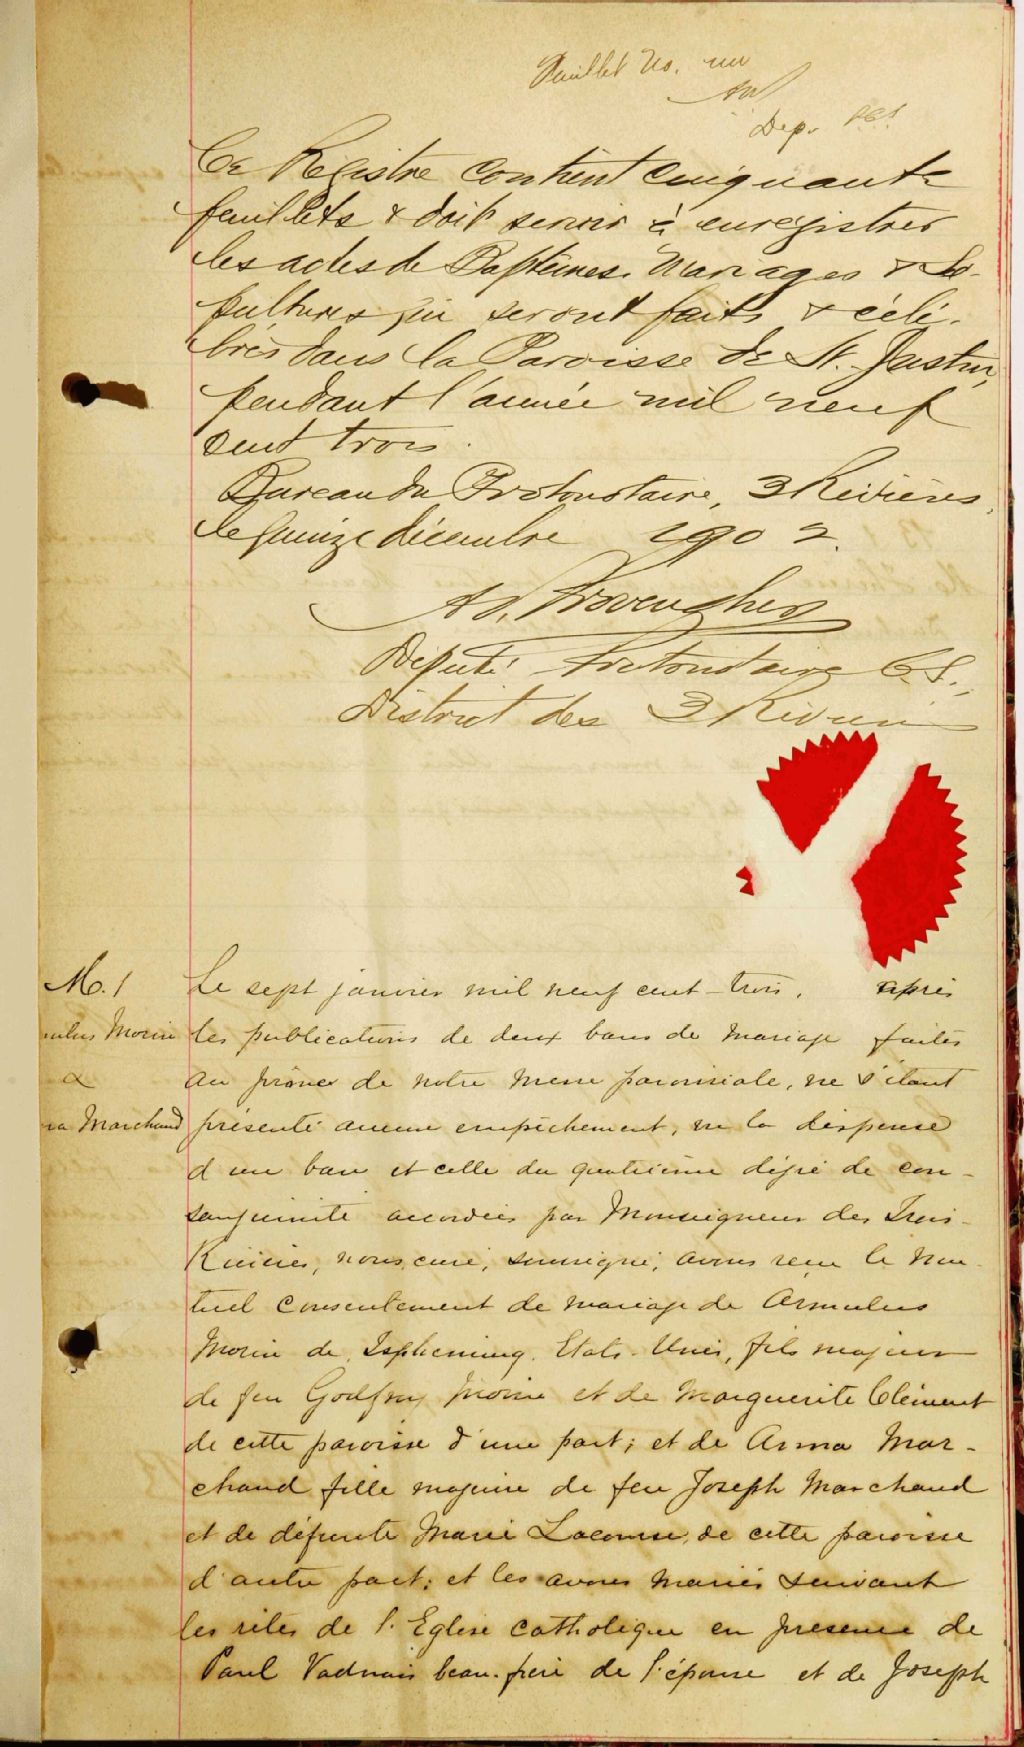 Feuillet No. un
Dep.
Ce Registre contient cinquante
feuillets & doit servir à enregistrer
les actes de Baptêmes. Mariages & Sé-
pultures qui seront faits & célé-
brés dans la Paroisse de St. Justin,
pendant l'année mil neuf
cent trois.
Bureau du Protonotaire, 3 Rivières,
le quinze décembre 1902.
Ad. Provencher
Député Protonotaire C.S.,
District des 3 Rivières
M. 1
Morin
&
Marchand
Le sept janvier mil neuf cent-trois, après
les publications de deux bans de mariage faites
au prône de notre messe paroissiale, ne s'étant
présenté aucun empêchement, vu la dispense
d'un ban et celle du quatrième dégré de con-
sanguinité accordées par Monseigneur des Trois-
Rivières, nous, curé, soussigné, avons reçu le mu-
tuel consentement de mariage de
Morin de Ispheming. Etats-Unis, fils majeur
de feu Godfroy Morin et de Marguerite Clément
de cette paroisse d'une part; et de Anna Mar-
chand fille majeure de feu Joseph Marchand
et de défunte Marie Lacourse, de cette paroisse
d'autre part; et les avons mariés suivant
les rites de l'Eglise catholique en présence de
Paul Vadnais beau-frère de l'épouse et de Joseph